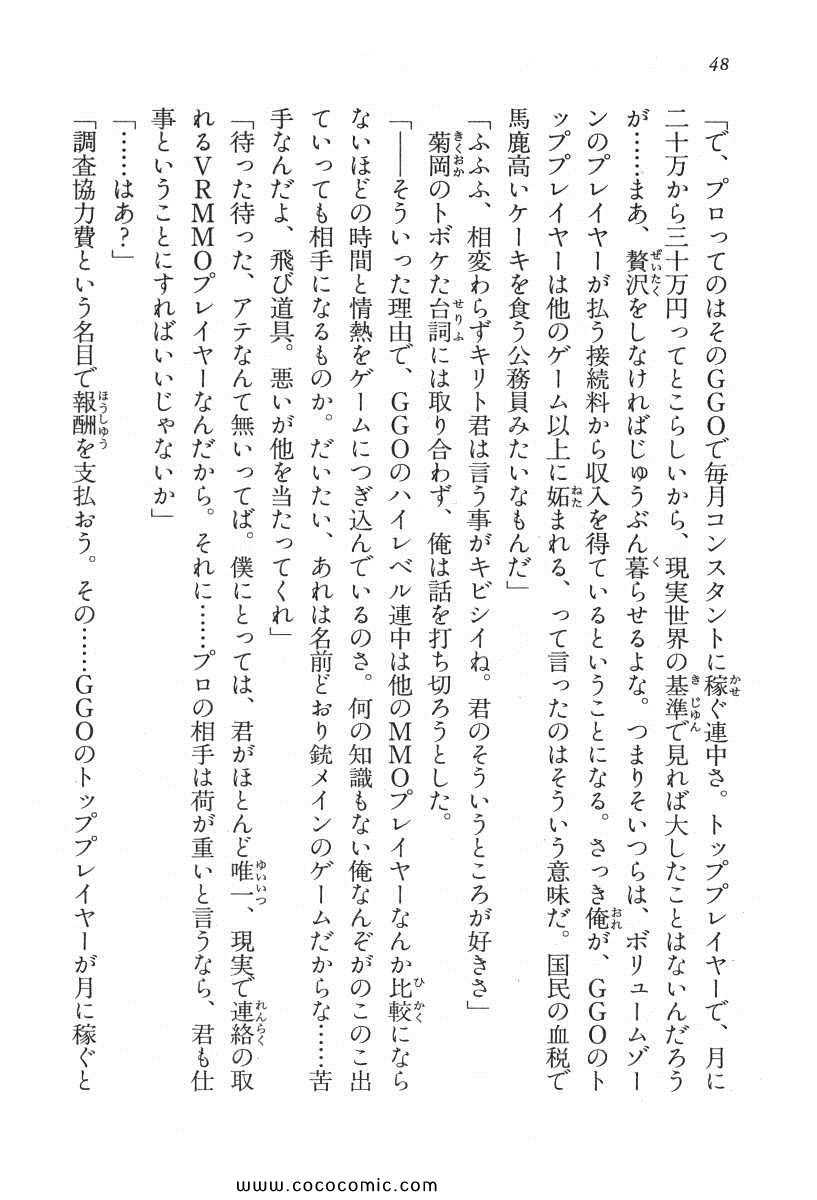 48
「で、プロってのはそのＧＧＯで毎月コンスタントに稼ぐ連中さ。トッププレイヤーで、月に
二十万から三十万円ってとこらしいから、現実世界の基準で見れば大したことはないんだろう
が……まあ、贅沢をしなければじゅうぶん暮らせるよな。つまりそいつらは、ボリュームゾー
ンのプレイヤーが払う接続料から収入を得ているということになる。さっき俺が、ＧＧＯのト
ッププレイヤーは他のゲーム以上に妬まれる、って言ったのはそういう意味だ。国民の血税で
馬鹿高いケーキを食う公務員みたいなもんだ」
「ふふふ、相変わらずキリト君は言う事がキビシイね。君のそういうところが好きさ」
菊岡のトボケた台詞には取り合わず、俺は話を打ち切ろうとした。
「――そういった理由で、ＧＧＯのハイレベル連中は他のＭＭＯプレイヤーなんか比較になら
ないほどの時間と情熱をゲームにつぎ込んでいるのさ。何の知識もない俺なんぞがのこのこ出
ていっても相手になるものか。だいたい、あれは名前どおり銃メインのゲームだからな……苦
手なんだよ、飛び道具。悪いが他を当たってくれ」
「待った待った、アテなんて無いってば。僕にとっては、君がほとんど唯一、現実で連絡の取
れるＶＲＭＭＯプレイヤーなんだから。それに……プロの相手は荷が重いと言うなら、君も仕
事ということにすればいいじゃないか」
「……はあ？」
「調査協力費という名目で報酬を支払おう。その……ＧＧＯのトッププレイヤーが月に稼ぐと
www.cococomic.com